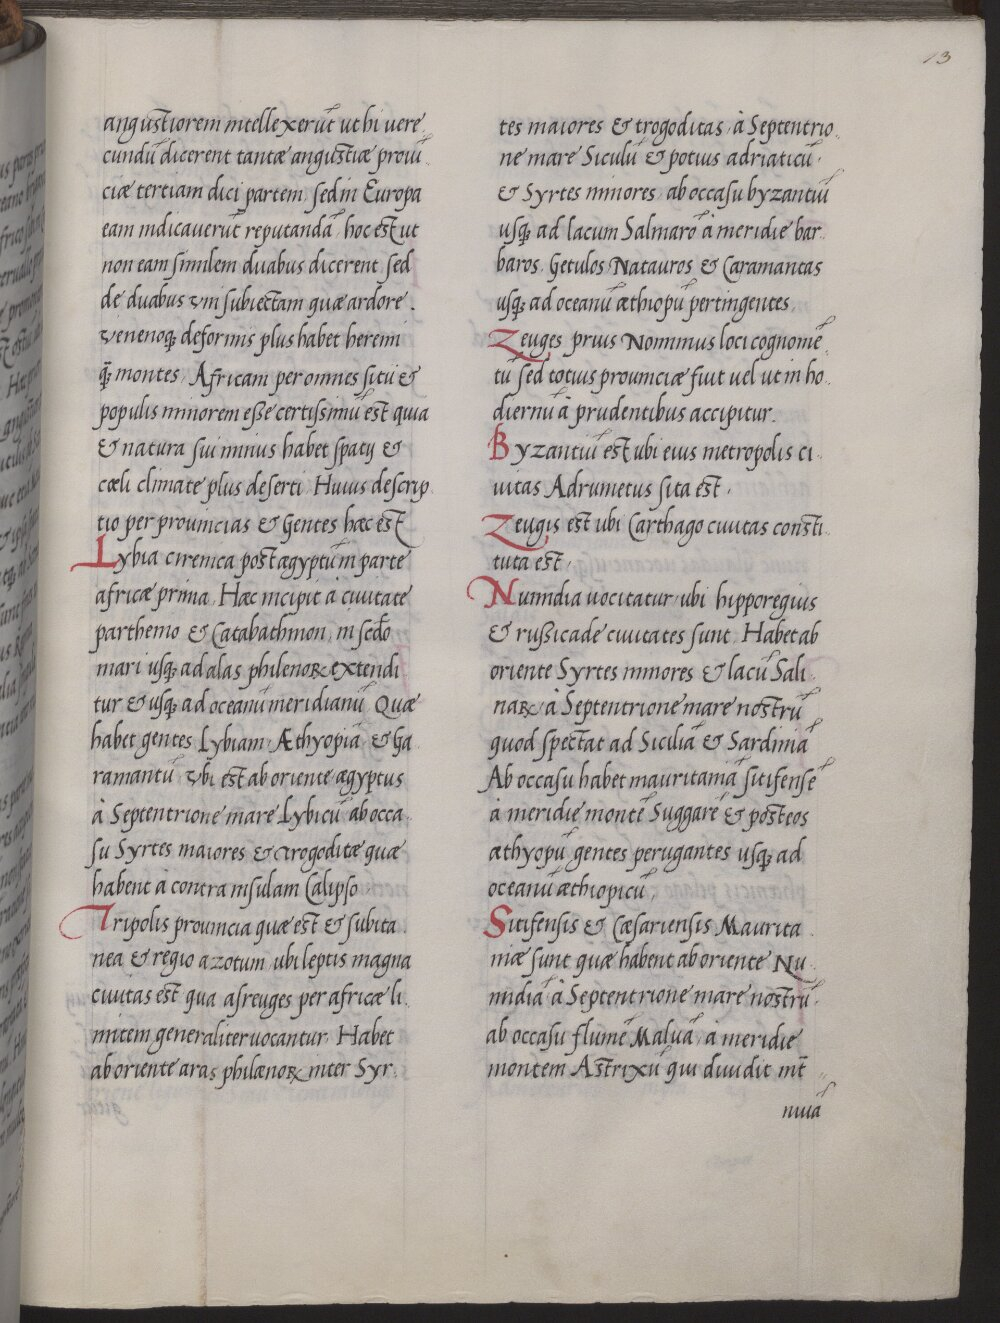 13
angustiorem intellexerūt ut hi vere
cundiū dicerent tantæ angustiæ provī
ciæ tertiam dici partem, sed in Europa
eam indicaverūt reputandā, hoc est ut
non eam similem duabus dicerent, sed
de duabus uni subiectam quæ ardore.
venenoq; deformis plus habet heremi
q̃; montes. Africam per omnes sitū &
populis minorem eſſe certiſsimū est, quia
& natura sui minus habet spatij &
cœli climate plus deserti. Huius descrip
tio per provincias & Gentes hæc est
Lybia cirenica post ægyptum parte
africæ prima. Hæc incipit à civitate
parthenio & Catabathmon, in sedo
mari usq; ad alas philenoꝝ extendi
tur & usq; ad oceanū meridianū. Quæ
habet gentes Lybiam, Æthyopiā, & Ga
ramantū ubi est ab oriente ægyptus
à Septentrione mare Lybicū ab occa
su Syrtes maiores & trogoditæ quæ
habent à contra insulam Calipso
Tripolis provincia quæ est & subita
nea & regio azotum, ubi leptis magna
civitas est qua asreuges per africæ li
mitem generaliter vocantur. Habet
ab oriente aras philænoꝝ inter Syr.
tes maiores & trogoditas, à Septentrio
ne mare Siculū & potius adriaticū,
& Syrtes minores, ab occasu byzantiū
usq; ad lacum Salmarō à meridie bar
baros, Getulos, Natauros & Caramantas
usq; ad oceanū æthiopū pertingentes.
Zeuges prius Nominus loci cognomē
tū sed totius provinciæ fuit vel ut in ho
diernū à prudentibus accipitur.
Byzantiū est ubi eius metropolis ci
vitas Adrumetus sita est.
Zeugis est ubi Carthago civitas consti
tuta est.
Numidia vocitatur, ubi hipporegius
& rußicade civitates sunt. Habet ab
oriente Syrtes minores & lacū Sali
naꝝ, à Septentrione mare nostrū
quod spectat ad Siciliā & Sardiniā
Ab occasu habet mauritaniā sitifensē
à meridie montē Suggarē & post eos
æthyopū gentes perugantes usq; ad
oceanū æthiopicū.
Sitifensis & Cæsariensis Maurita
niæ sunt quæ habent ab oriente Nu
midiā à Septentrione mare nostrū,
ab occasu flumē Malvā, à meridie
montem Astrixū qui dividit int̄
viuā